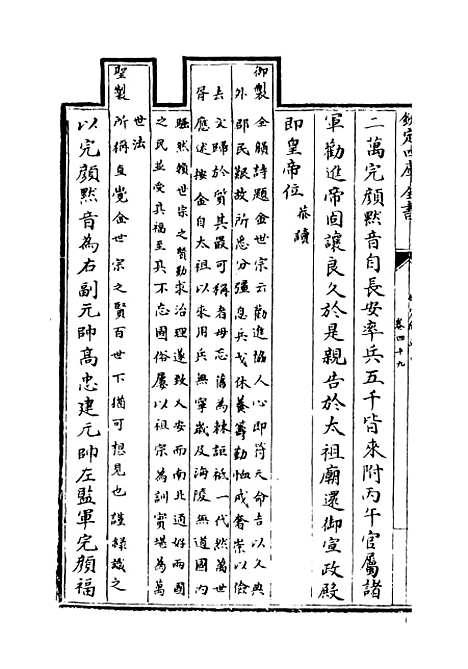 欽定四庫全書
卷四十九
二萬完顔黙音自長安率兵五千皆來附丙午官屬諸
軍勸進帝固讓良久於是親告於太祖廟還御宣政殿
即皇帝位恭讀
御製全韻詩題金世宗云勸進協人心即符天命吉以久典
外郡民艱故所悉分疆息兵戈休養籌勤恤戒奢崇以儉
去文歸於質其最可稱者毋忘舊為棘詎祗一代然萬世
胥應述按金自太祖以來用兵無寧歲及海陵無道國内
騷然賴世宗之贊勤求治理遂致乂安而南北通好兩國
之民並受其福至其不忘國俗屢以祖宗為訓實堪為萬
世法
聖製所稱直覺金世宗之賢百世下猶可想見也謹録識之
以完顔黙音為右副元帥高忠建元帥左監軍完顔福